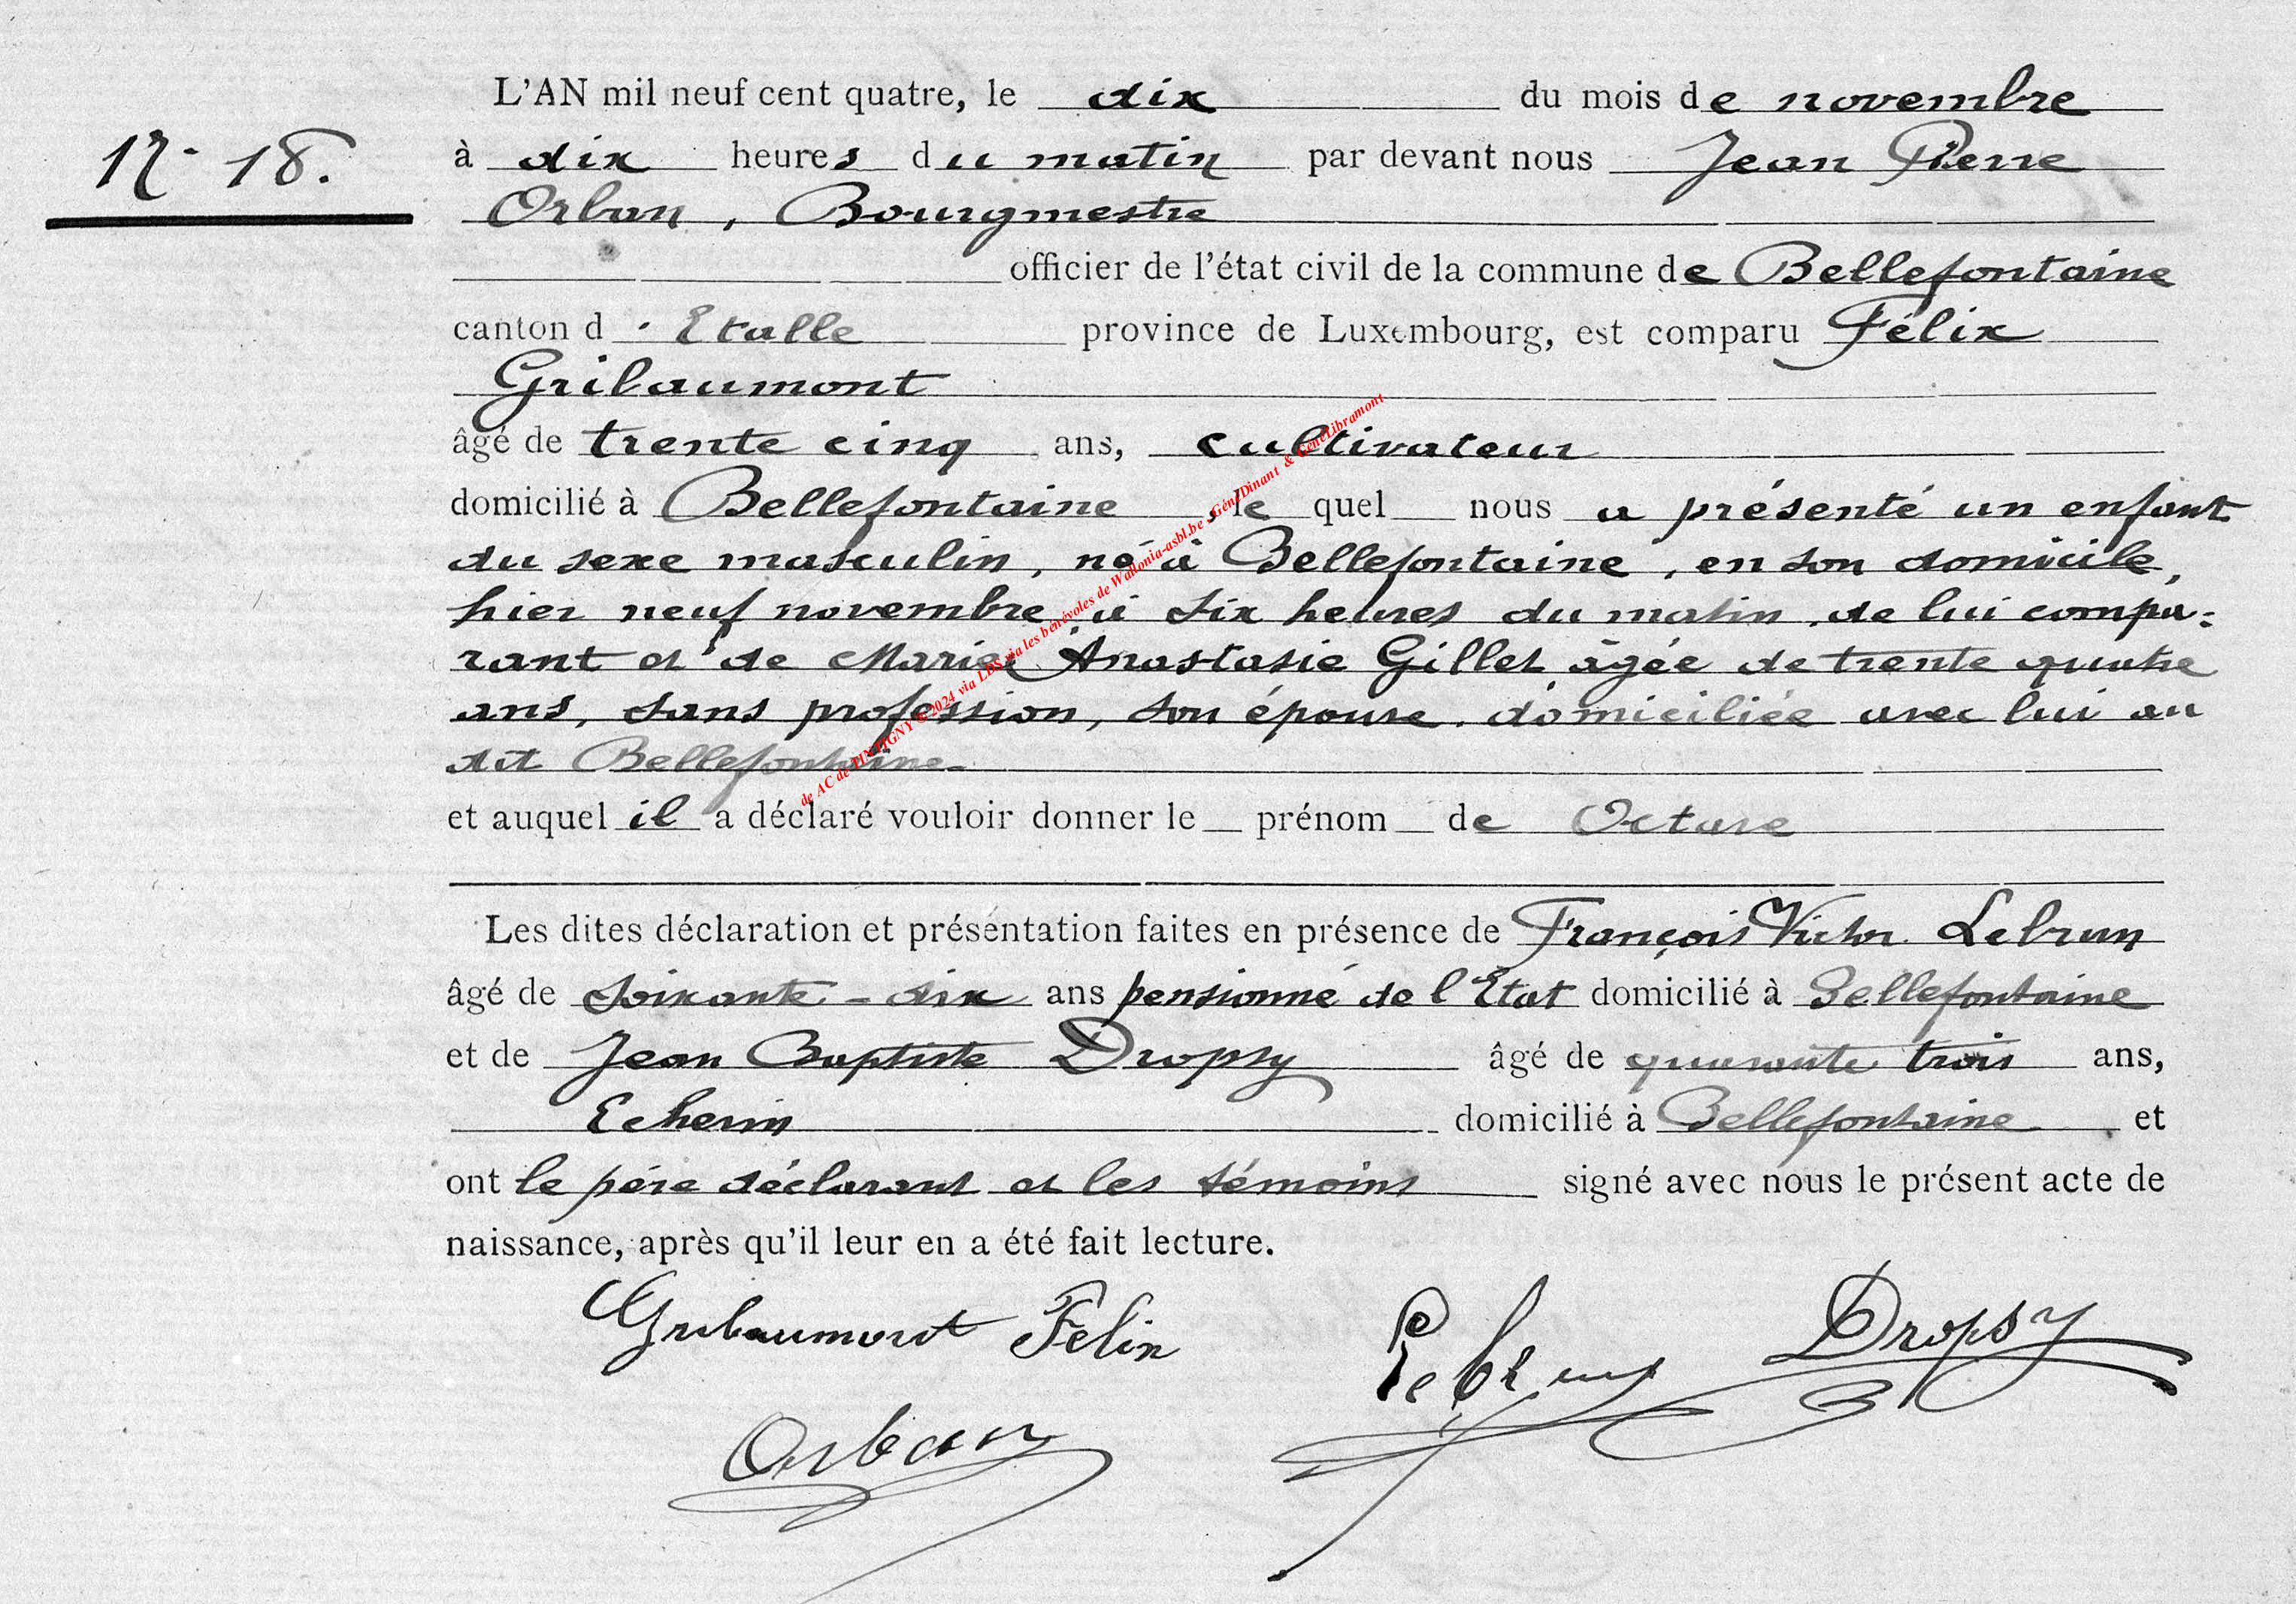 L'AN mil neuf cent quatre, le dix du mois de novembre
N° 18.
à dix heures du matin par devant nous Jean Pierre
Orban, Bourgmestre
officier de l'état civil de la commune de Bellefontaine
canton d'Etalle province de Luxembourg, est comparu Félix
Gribaumont
âgé de trente cinq ans, cultivateur
domicilié à Bellefontaine, le quel nous a présenté un enfant
du sexe masculin, né à Bellefontaine, en son domicile,
hier neuf novembre à six heures du matin, de lui compa-
rant et de Marie Anastasie Gillet âgée de trente quatre
ans, sans profession, son épouse, domiciliée avec lui au
dit Bellefontaine.
et auquel il a déclaré vouloir donner le prénom de Octave
Les dites déclaration et présentation faites en présence de François Victor Lebrun
âgé de soixante-dix ans pensionné de l'Etat domicilié à Bellefontaine
et de Jean Baptiste Dropsy âgé de quarante trois ans,
Echevin domicilié à Bellefontaine et
ont le père déclarant et les témoins signé avec nous le présent acte de
naissance, après qu'il leur en a été fait lecture.
Gribaumont Felix Lebrun Dropsy
Orban
de AC de TINTIGNY © 2024 via LDS via les bénévoles de Wallonia-asbl.be , GénéDinant & GénéLibramont